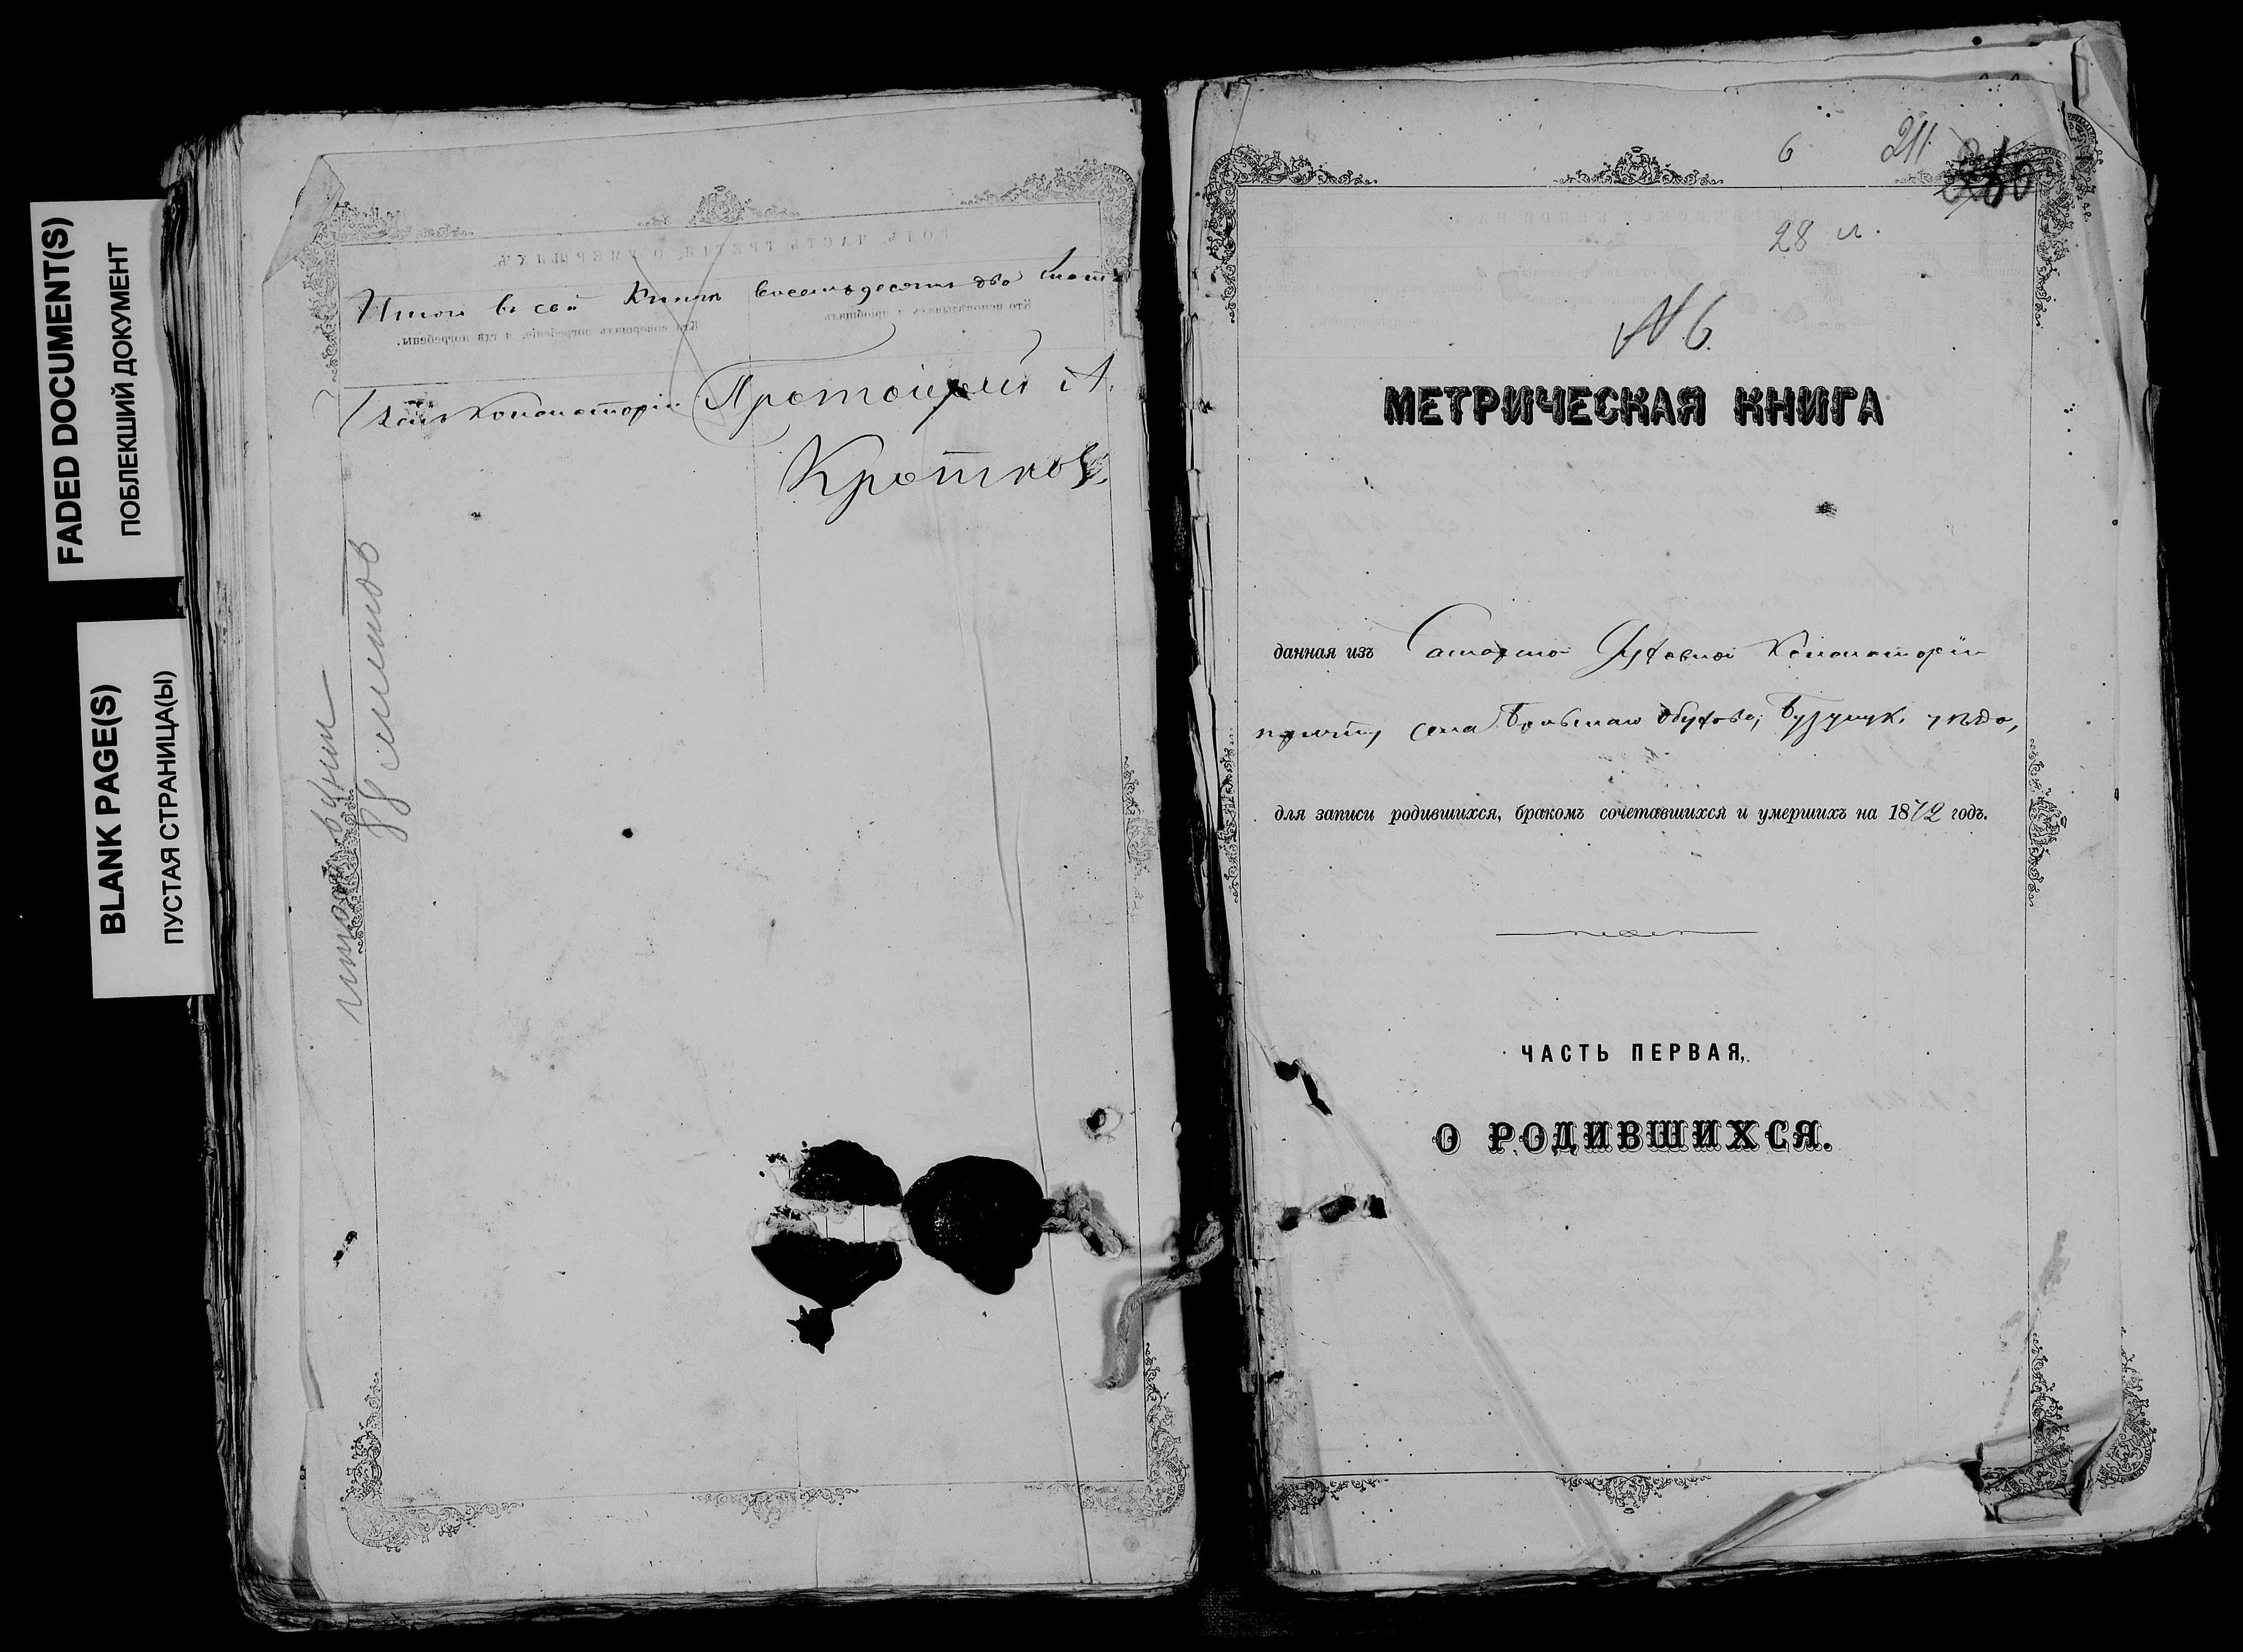 FADED DOCUMENT(S)
ПОБЛЕКШИЙ ДОКУМЕНТ
BLANK PAGE(S)
ПУСТАЯ СТРАНИЦА(Ы)
Итого въ сей книгѣ восемьдесятъ два
Протоіерей А.
Кротковъ
88 листов
6 211
28 л.
№ 6.
МЕТРИЧЕСКАЯ КНИГА
данная изъ Самарской Духовной Консисторіи
причту села Большаго Обухова, Бузулук. уѣзда,
для записи родившихся, бракомъ сочетавшихся и умершихъ на 1872 годъ.
ЧАСТЬ ПЕРВАЯ,
О РОДИВШИХСЯ.